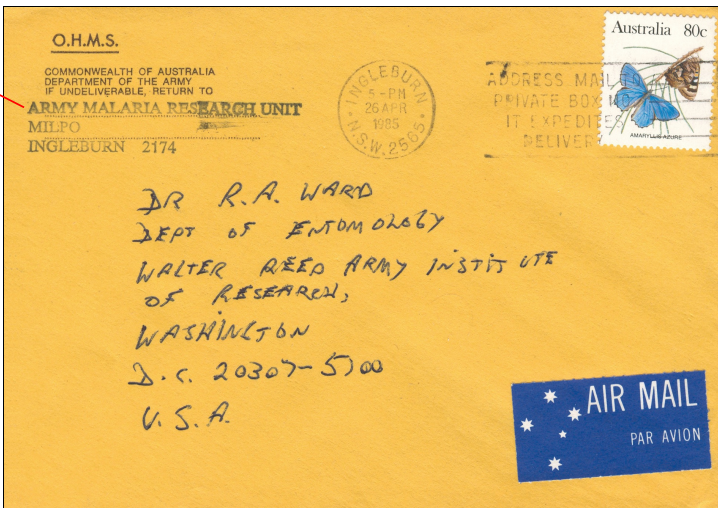 O.H.M.S.
COMMONWEALTH OF AUSTRALIA
DEPARTMENT OF THE ARMY
IF UNDELIVERABLE, RETURN TO
ARMY MALARIA RESEARCH UNIT
MILPO
INGLEBURN 2174
INGLEBURN
5-PM
26 APR
1985
N.S.W. 2565
ADDRESS MAIL TO
PRIVATE BOX NO
IT EXPEDITES
DELIVERY
Australia 80c
AMARYLLIS AZURE
DR R.A. WARD
DEPT OF ENTOMOLOGY
WALTER REED ARMY INSTITUTE
OF RESEARCH,
WASHINGTON
D.C. 20307-5100
U.S.A.
AIR MAIL
PAR AVION